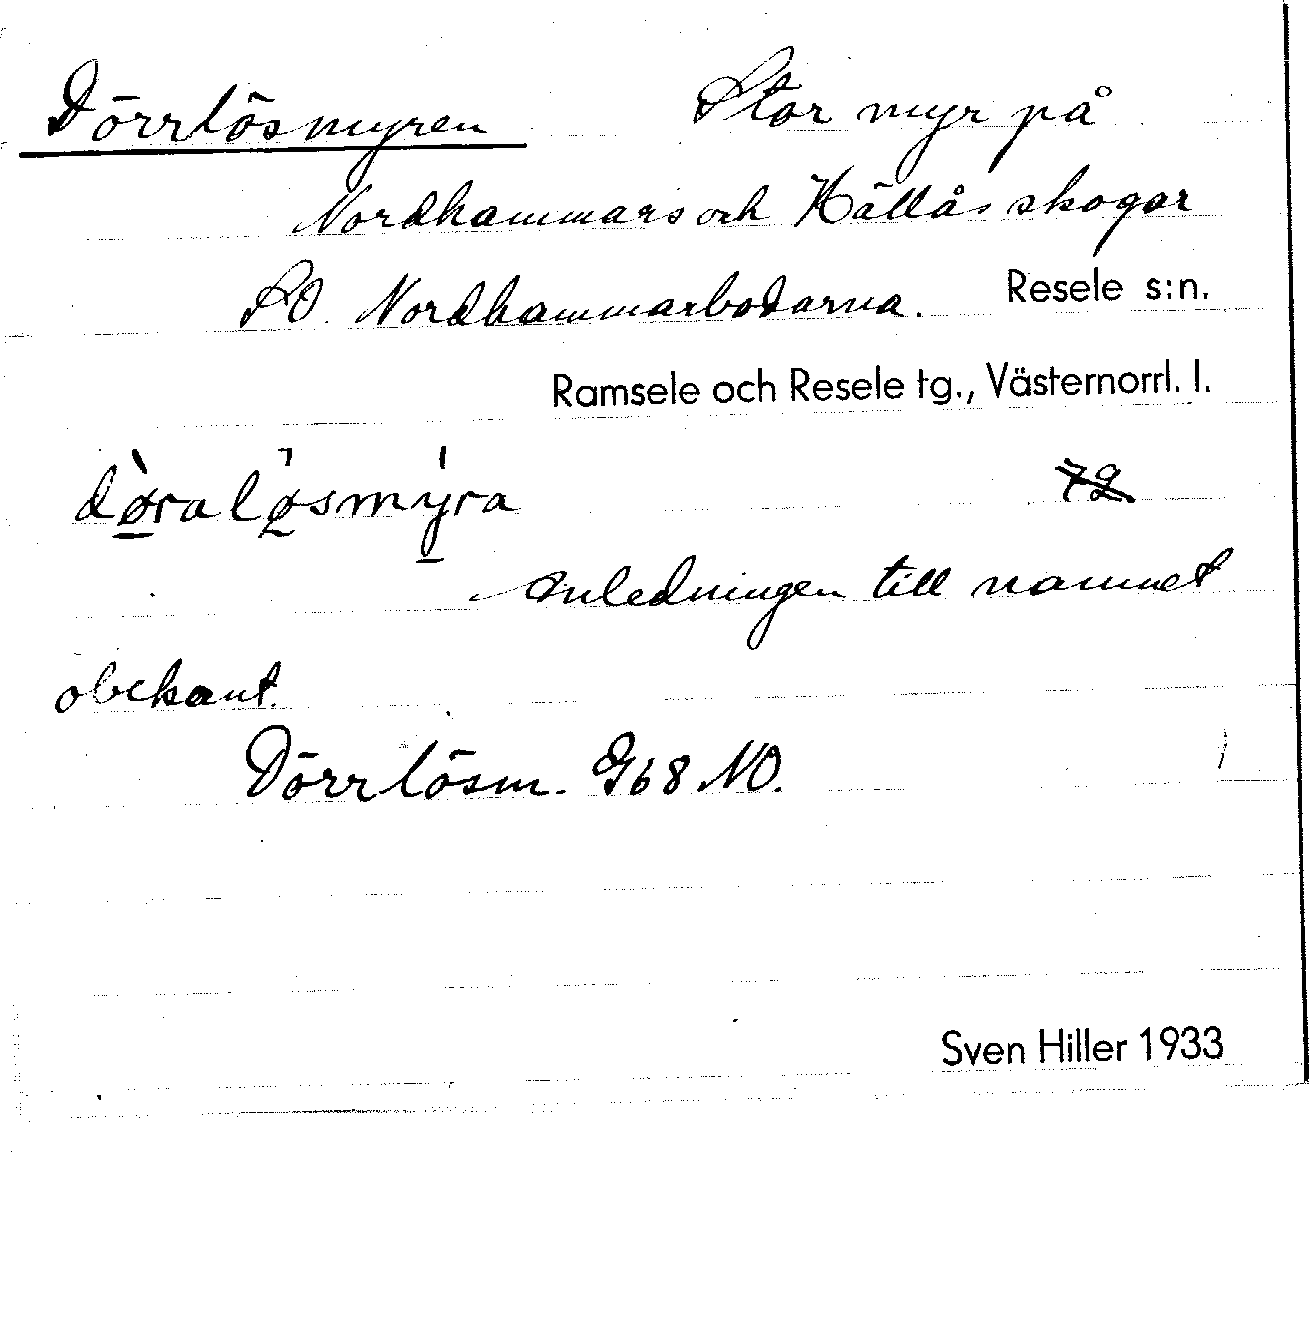 Dörrlösmyren Stor myr på
Nordhammars och Hällås skogar
SO. Nordhammarbodarna. Resele s:n.
Ramsele och Resele tg., Västernorrl. l.
døralø̨smyra 72
Anledningen till namnet
obekant.
Dörrlösm. G68 NO.
Sven Hiller 1933